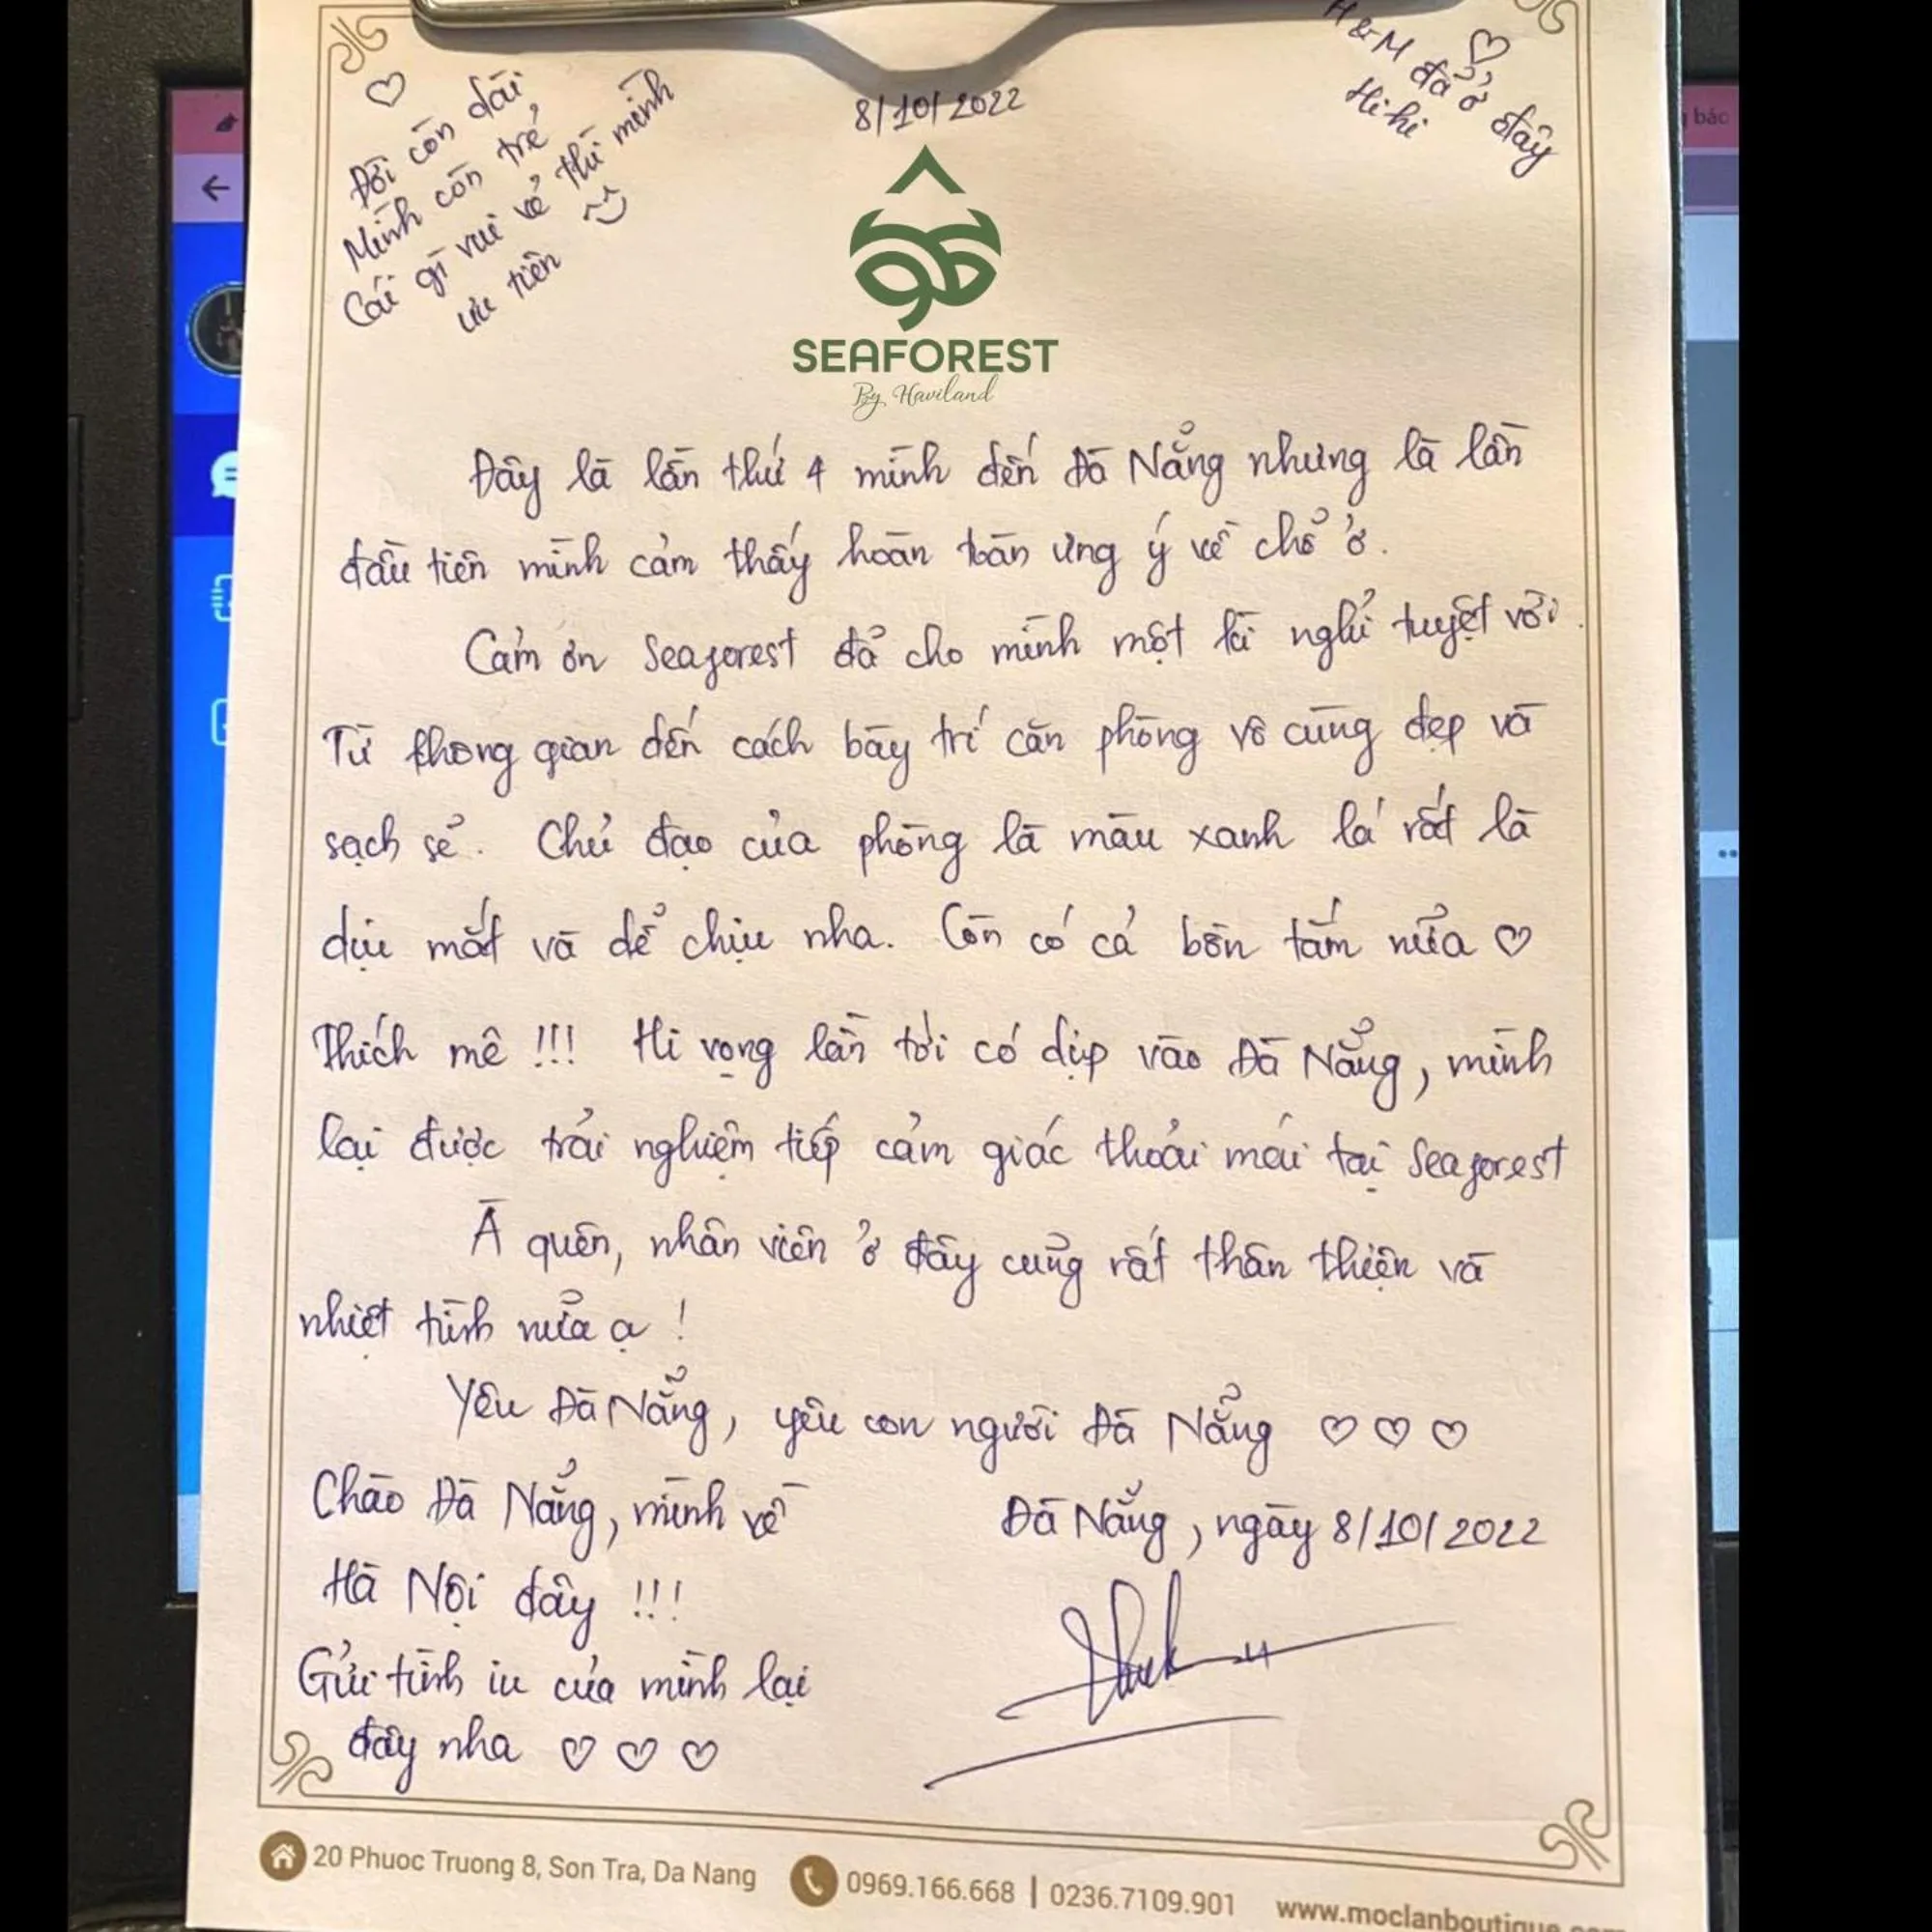 ♡
Đời còn dài
Mình còn trẻ
Cái gì vui vẻ thì mình
ưu tiên
8/10/2022
♡
H&M đã ở đây
Hihi
SEAFOREST
By Haviland
Đây là lần thứ 4 mình đến Đà Nẵng nhưng là lần
đầu tiên mình cảm thấy hoàn toàn ưng ý về chỗ ở.
Cảm ơn Seaforest đã cho mình một kì nghỉ tuyệt vời.
Từ không gian đến cách bày trí căn phòng vô cùng đẹp và
sạch sẽ. Chủ đạo của phòng là màu xanh lá rất là
dịu mắt và dễ chịu nha. Còn có cả bồn tắm nữa ♡
Thích mê !!! Hi vọng lần tới có dịp vào Đà Nẵng, mình
lại được trải nghiệm tiếp cảm giác thoải mái tại Seaforest
À quên, nhân viên ở đây cũng rất thân thiện và
nhiệt tình nữa ạ !
Yêu Đà Nẵng, yêu con người Đà Nẵng ♡ ♡ ♡
Chào Đà Nẵng, mình về
Hà Nội đây !!!
Gửi tình iu của mình lại
đây nha ♡ ♡ ♡
Đà Nẵng, ngày 8/10/2022
20 Phuoc Truong 8, Son Tra, Da Nang
0969.166.668 | 0236.7109.901
www.moclanboutique.com
báo